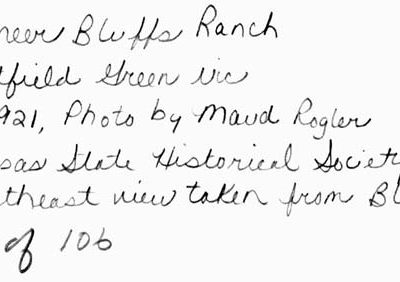 neer Bluffs Ranch
tfield Green vic
921, Photo by Maud Rogler
sas State Historical Societ
theast view taken from Bl
of 106